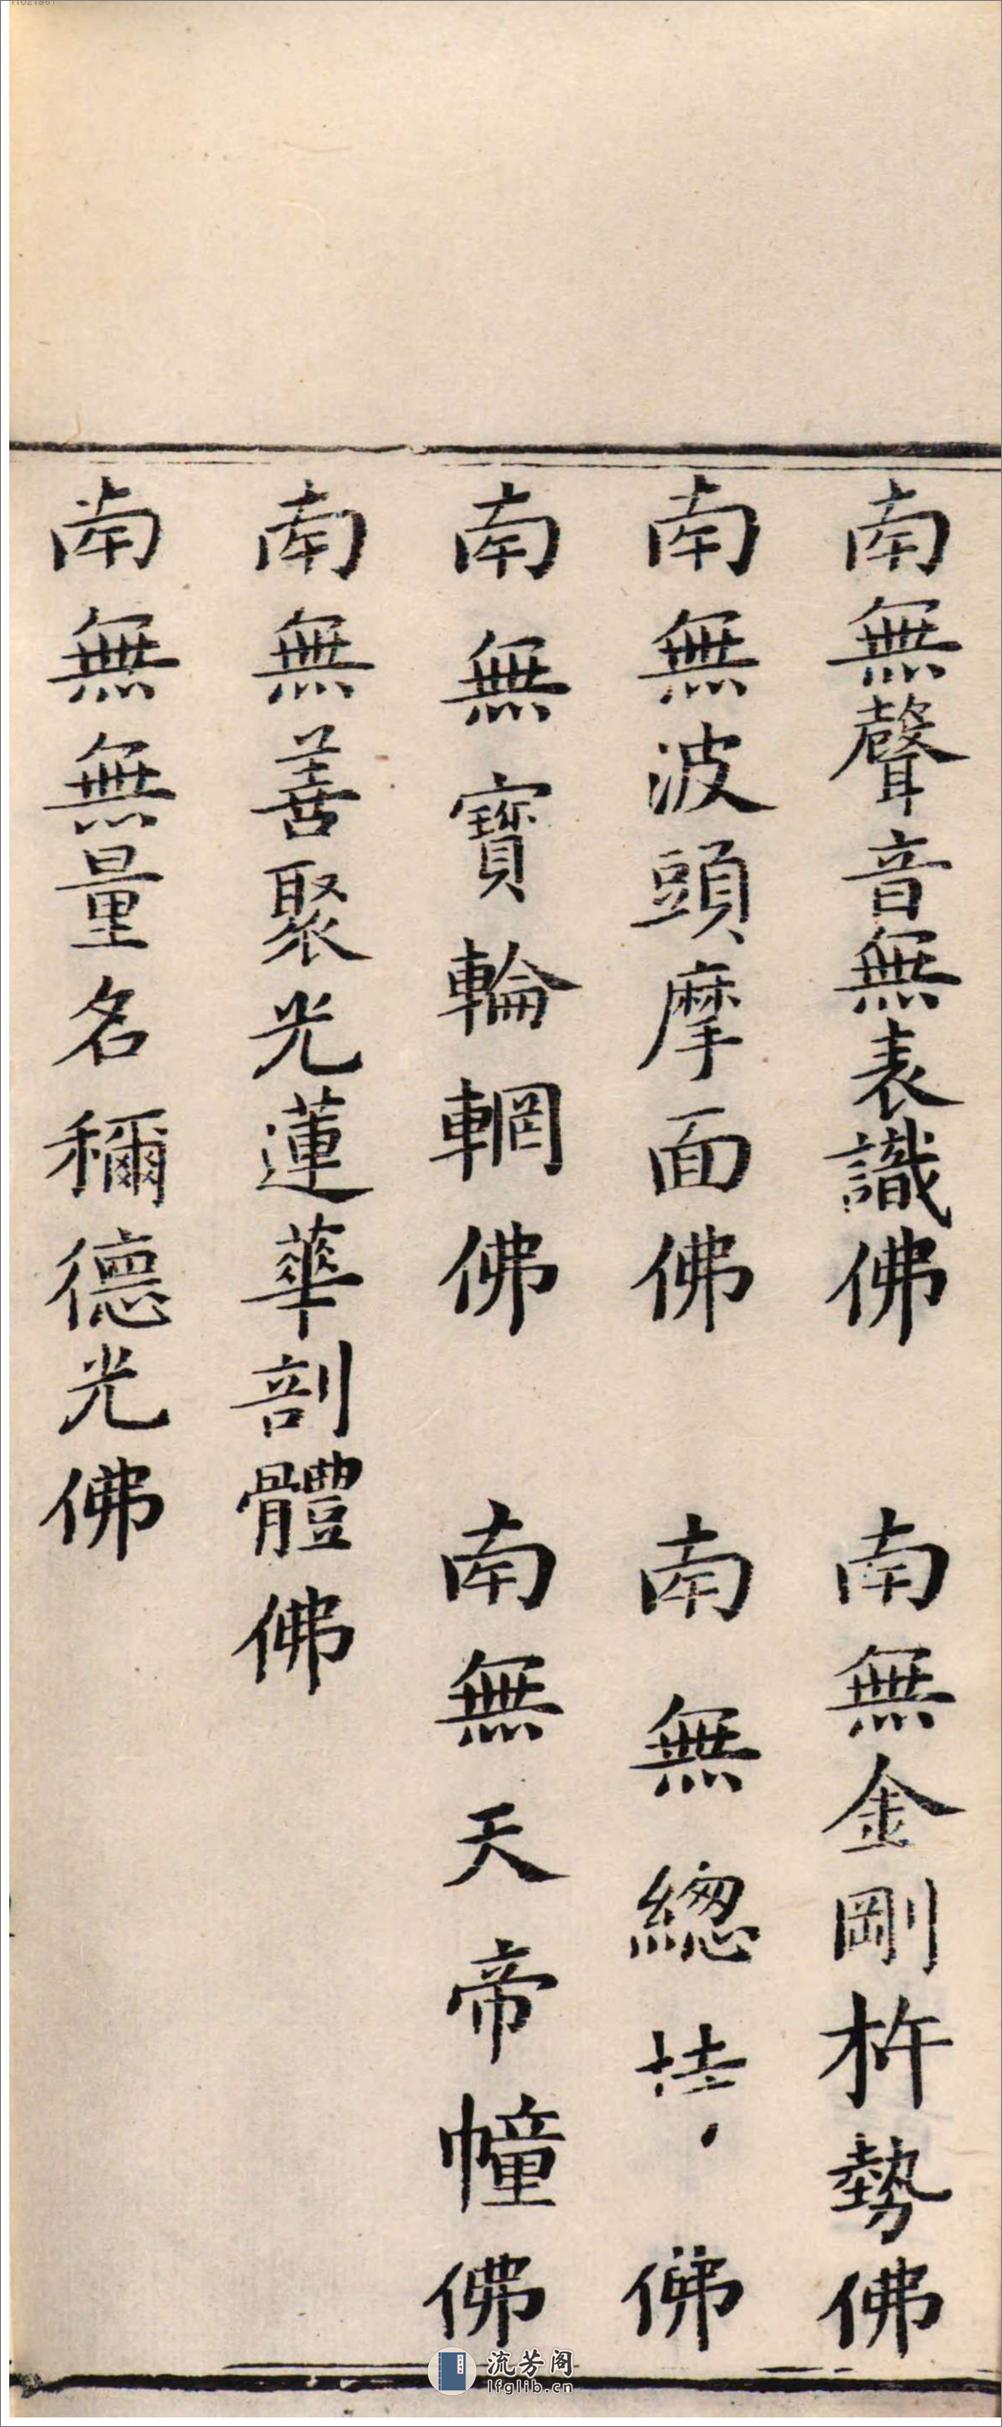 南無聲音無表識佛　南無金剛杵勢佛
南無波頭摩面佛　南無總持佛
南無寶輪輞佛　南無天帝幢佛
南無善聚光蓮華剖體佛
南無無量名稱德光佛
流芳阁
lfglib.cn